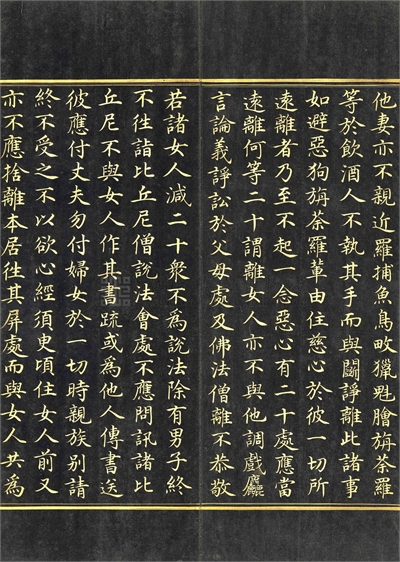 他妻亦不親近羅捕魚鳥畋獵魁膾旃荼羅
等於飲酒人不執其手而與鬬諍離此諸事
如避惡狗旃荼羅輩由住慈心於彼一切所
遠離者乃至不起一念惡心有二十處應當
遠離何等二十謂離女人亦不與他調戲麤
言論義諍訟於父母處及佛法僧離不恭敬
若諸女人減二十衆不為說法除有男子終
不往詣比丘尼僧說法會處不應問訊諸比
丘尼不與女人作其書疏或為他人傳書送
彼應付丈夫勿付婦女於一切時親族別請
終不受之不以欲心經須臾頃住女人前又
亦不應捨離本居往其屏處而與女人共為